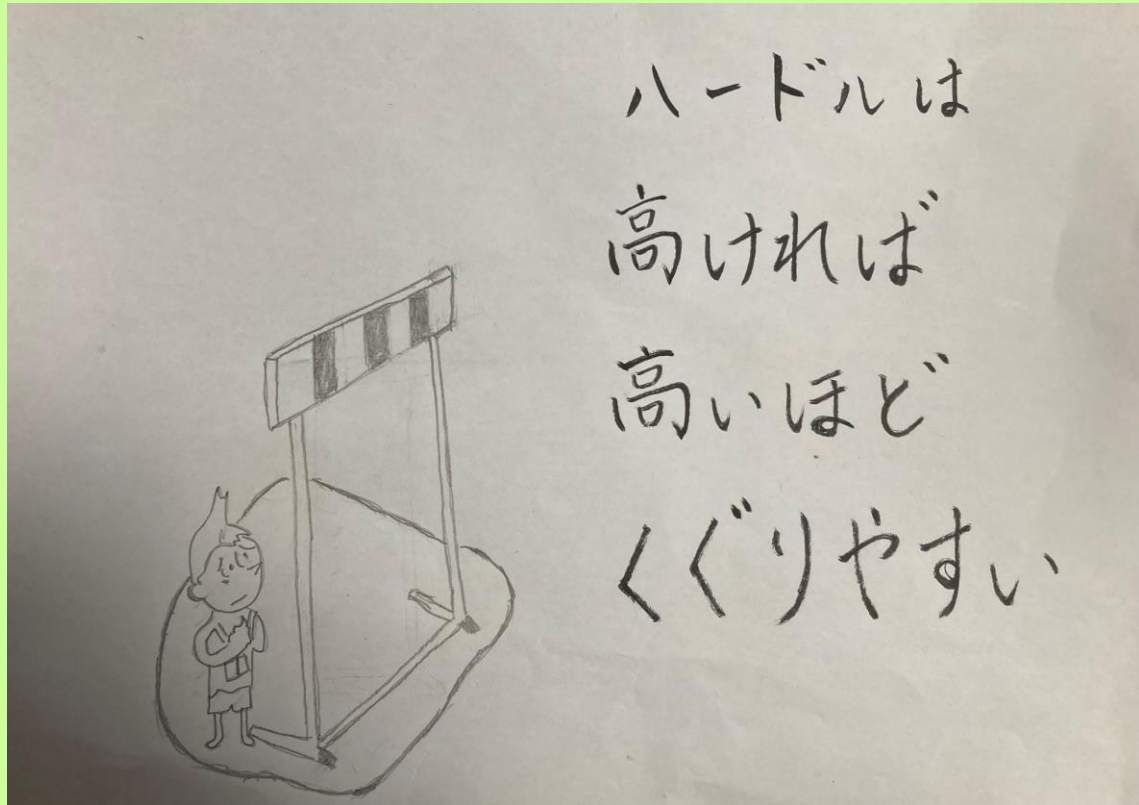 ハードルは
高ければ
高いほど
くぐりやすい